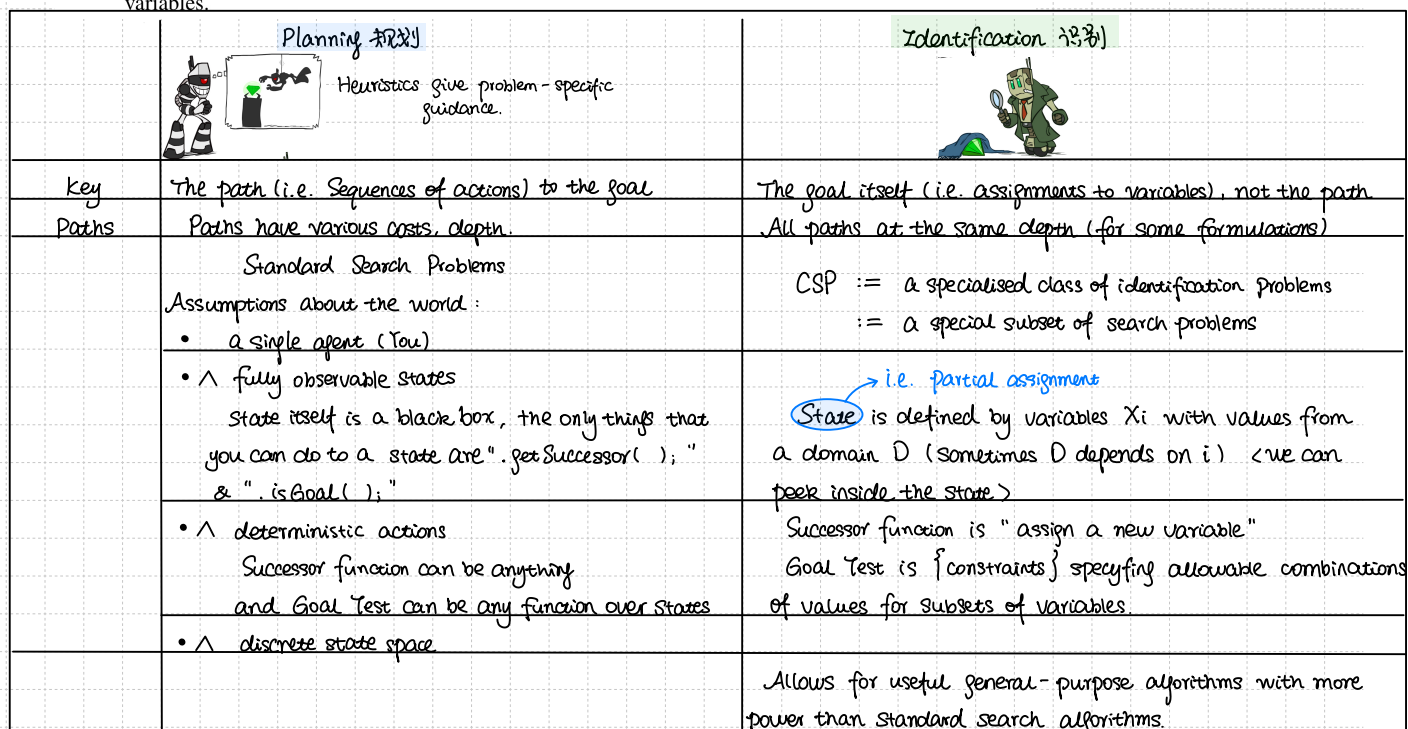 variables.
Planning 规划
Identification 识别
Heuristics give problem-specific
guidance.
Key
The path (i.e. Sequences of actions) to the goal
The goal itself (i.e. assignments to variables), not the path
Paths
Paths have various costs, depth.
All paths at the same depth (for some formulations)
Standard Search Problems
Assumptions about the world :
• a single agent (You)
CSP := a specialised class of identification problems
:= a special subset of search problems
• ∧ fully observable states
State itself is a black box, the only things that
you can do to a state are ".getSuccessor( ); "
& ". isGoal( );"
i.e. partial assignment
State is defined by variables Xi with values from
a domain D (sometimes D depends on i) <we can
peek inside the state>
• ∧ deterministic actions
Successor function can be anything
and Goal Test can be any function over states
Successor function is "assign a new variable"
Goal Test is {constraints} specyfing allowable combinations
of values for subsets of variables.
• ∧ discrete state space
Allows for useful general-purpose algorithms with more
power than standard search algorithms.